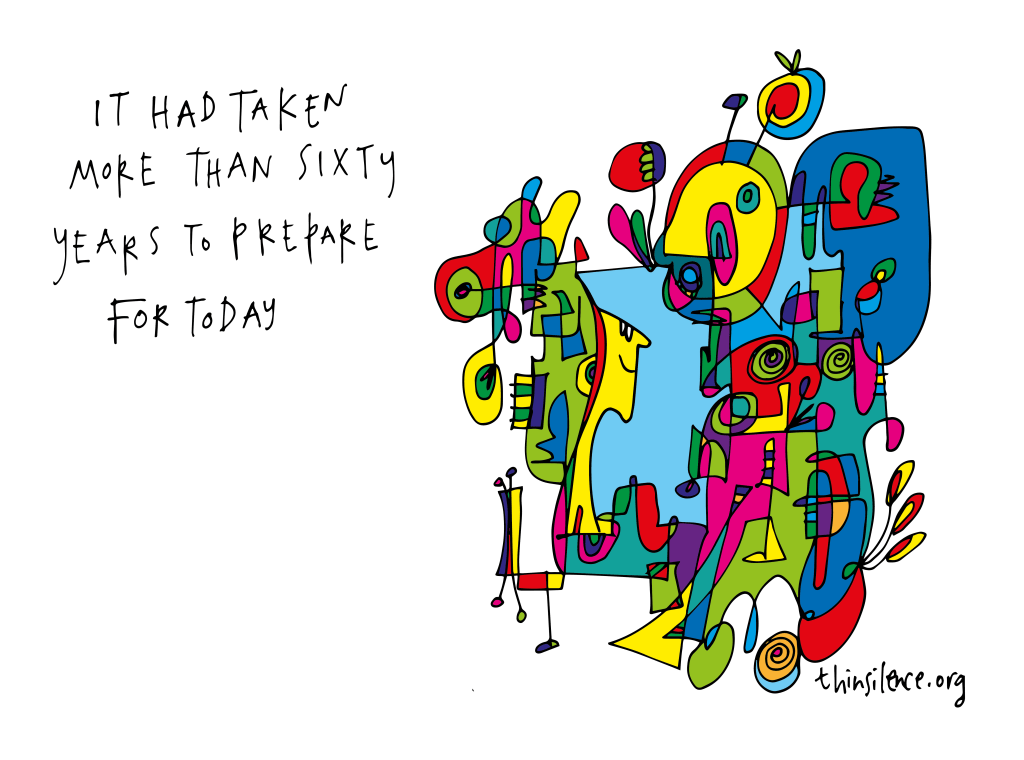 IT HAD TAKEN
MORE THAN SIXTY
YEARS TO PREPARE
FOR TODAY
thinsilence.org